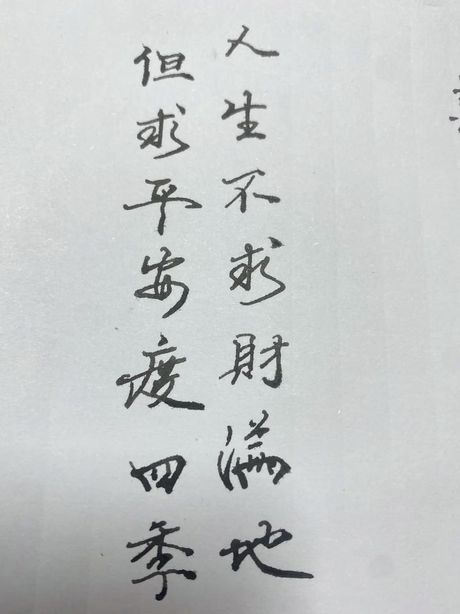 人生不求財溢地
但求平安度四季